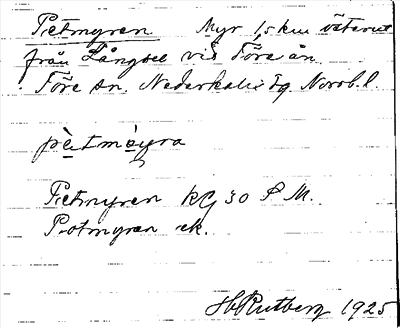 Pietmyren Myr 1,5 km västerut
från Långsel vid Töre ån
Töre sn. Nederkalix tg. Norrb. l.
pètmỳra
Pietmyren KG 30 P M.
Piotmyren ek.
H Rutberg 1925